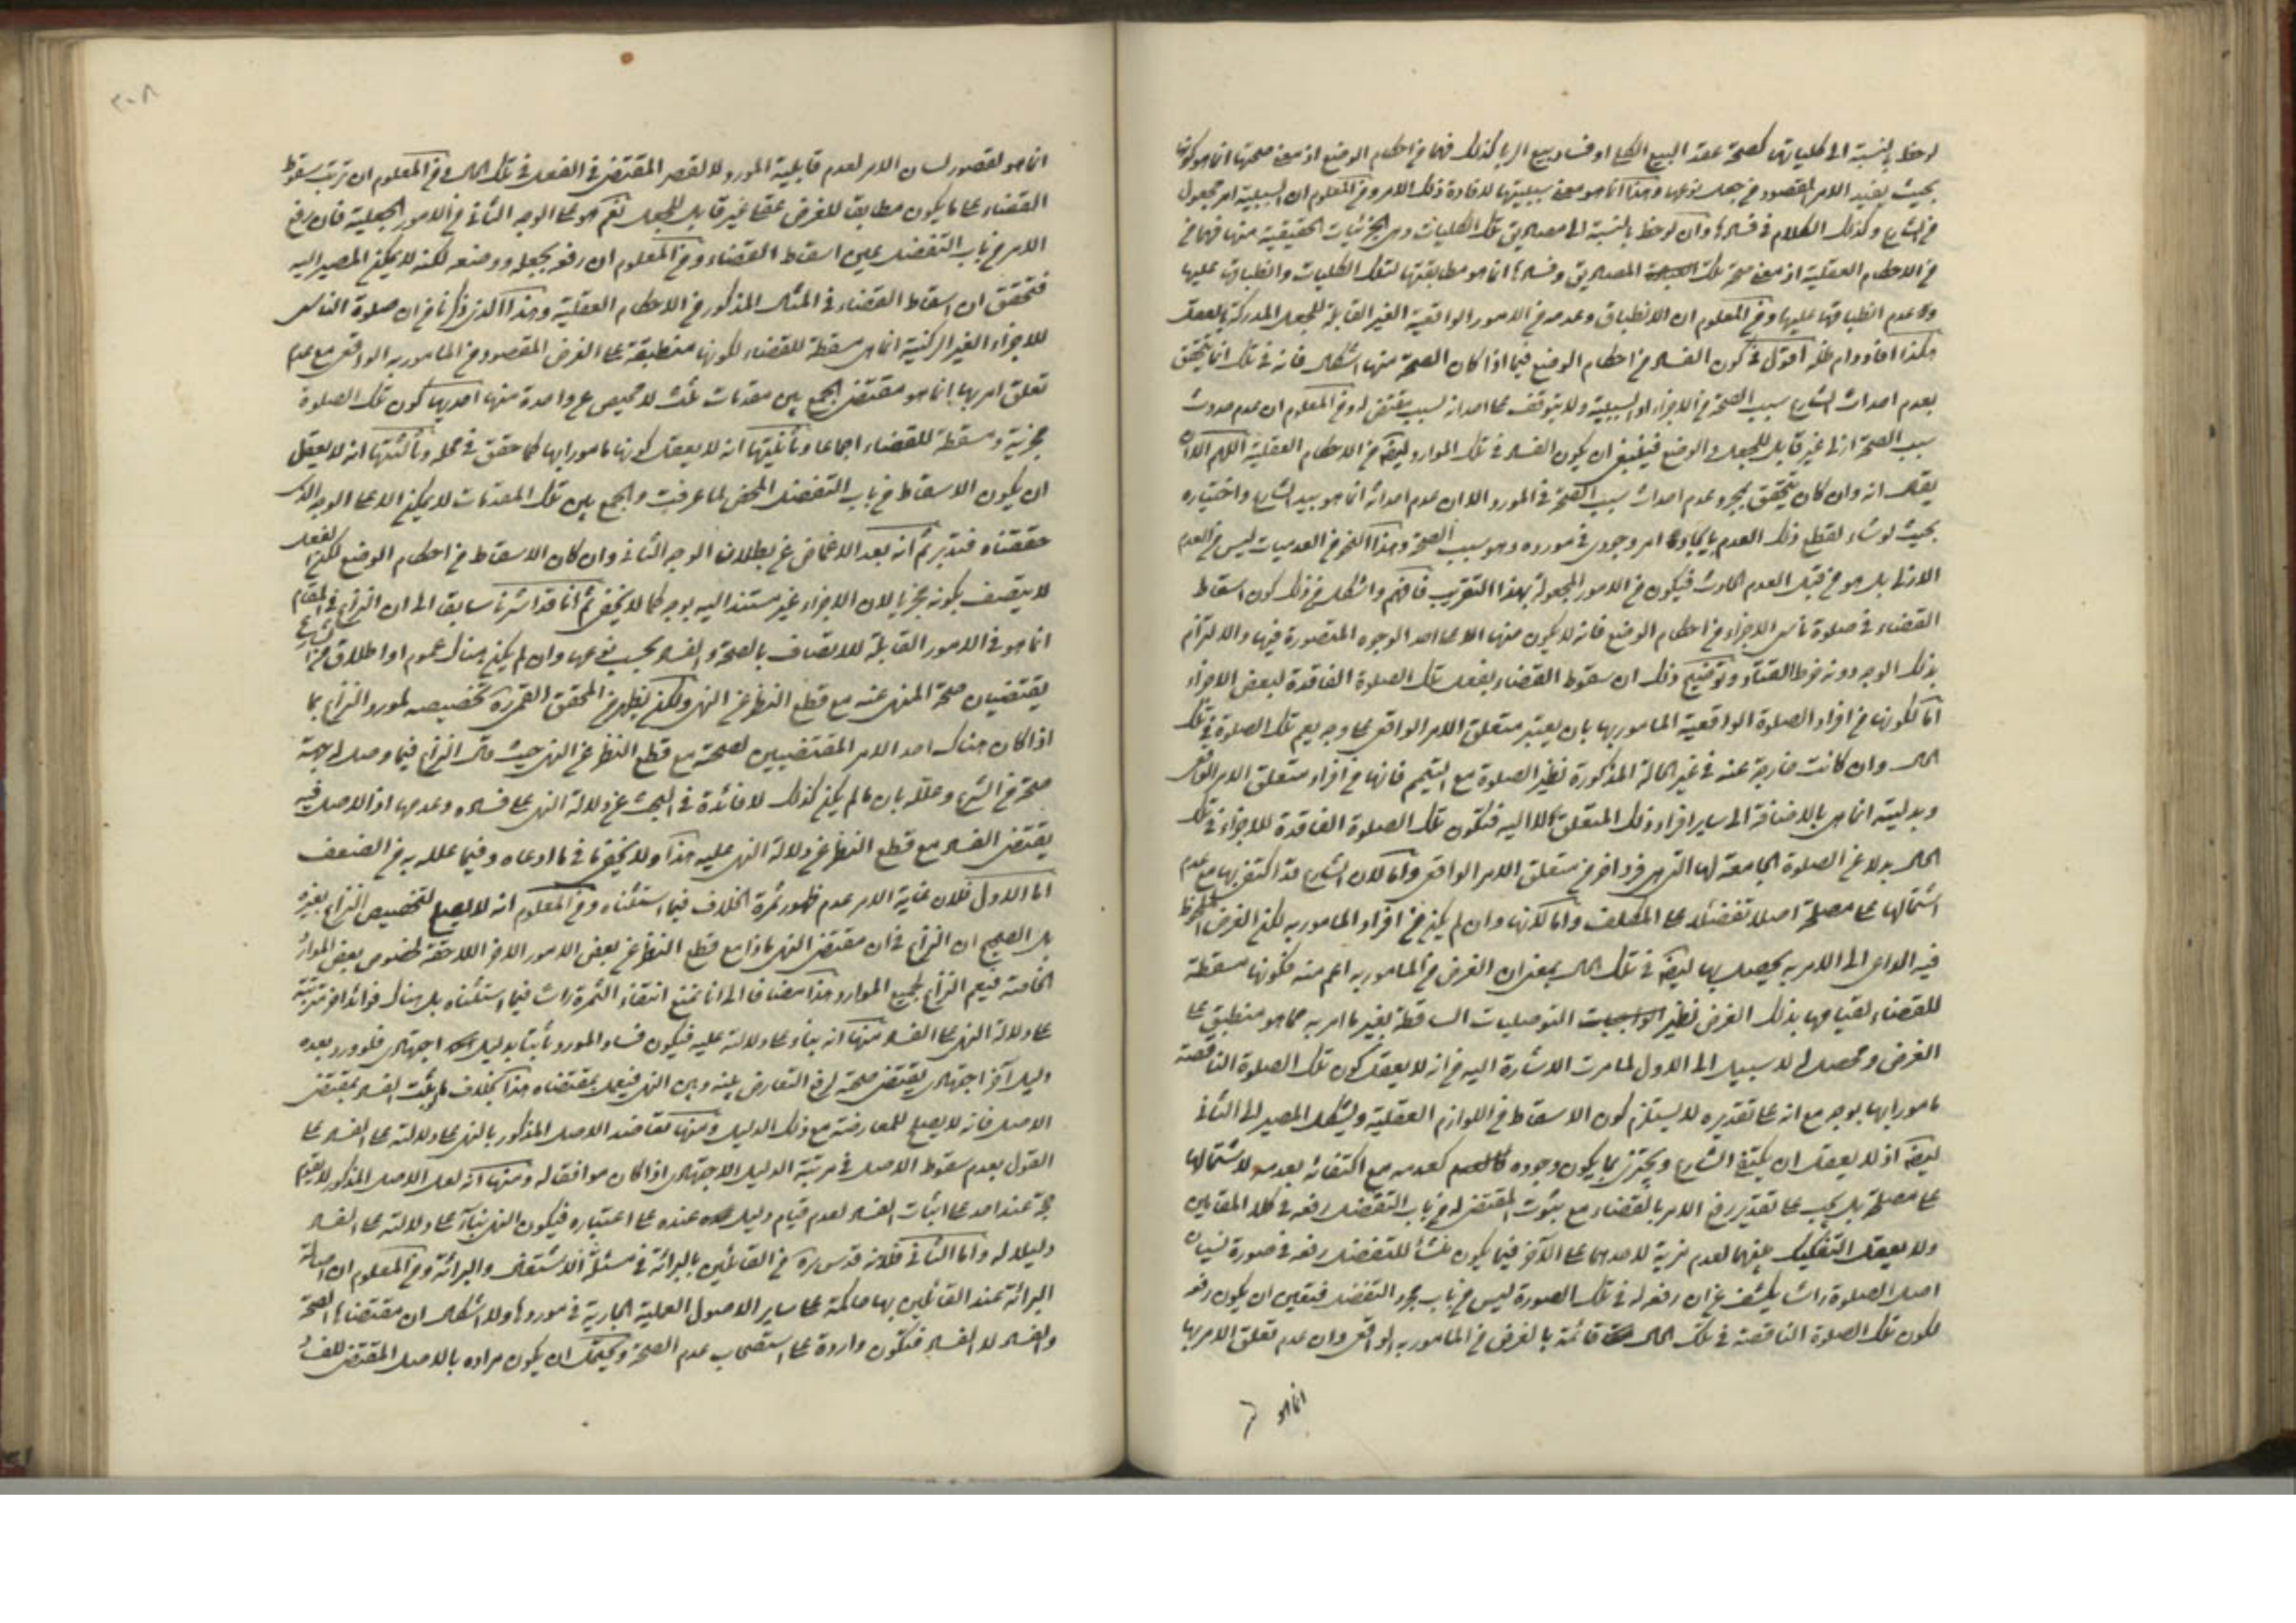 لوحظ بالنسبة الى كلياتها كصحة عقد البيع الكلى او فساد بيع الربا كذلك فهما من احكام الوضع اذ معنى صحتها انما هو كونها
بحيث يفيد الامر المقصود من جعل نوعها وهذا انما هو معنى سببيتها لافادة ذلك الامر ومن المعلوم ان السببية امر مجعول
من الشارع وكذلك الكلام فى فسادها وان لوحظ بالنسبة الى مصاديق تلك الكليات وهى الجزئيات الحقيقية منها فهما من
من الاحكام العقلية اذ معنى صحة تلك المصاديق وفسادها انما هو مطابقتها لتلك الكليات وانطباقها عليها
وعدم انطباقها عليها ومن المعلوم ان الانطباق وعدمه من الامور الواقعية الغير القابلة للجعل المدركة بالعقل
هكذا افاد دام ظله اقول فى كون الفساد من احكام الوضع فيما اذا كان الصحة منها اشكال فانه فى تلك انما يتحقق
بعدم احداث الشارع سبب الصحة من الاجزاء او السببية ولا يتوقف على احداث سبب مقتض له ومن المعلوم ان عدم حدوث
سبب الصحة ازلى غير قابل للجعل والوضع فينبغى ان يكون الفساد فى تلك الموارد ايضا من الاحكام العقلية اللهم الا ان
يقال انه وان كان يتحقق بمجرد عدم احداث سبب الصحة فى المورد الا ان عدم احداثه انما هو بيد الشارع واختياره
بحيث لو شاء لقطع ذلك العدم بايجاد امر وجودى فى مورده وهو سبب الصحة وهذا النحو من العدميات ليس من العدم
الازلى بل هو من قبيل العدم الحادث فيكون من الامور المجعولة بهذا التقريب فافهم واشكل من ذلك كون اسقاط
القضاء فى صلوة ناسى الاجزاء من احكام الوضع فانه لا يكون منها الا على احد الوجوه المتصورة فيها والالتزام
بذلك الوجه دونه خرط القتاد وتوضيح ذلك ان سقوط القضاء بفعل تلك الصلوة الفاقدة لبعض الاجزاء
اما لكونها من افراد الصلوة الواقعية المامور بها بان يعتبر متعلق الامر الواقعى على وجه يعم تلك الصلوة فى تلك
الحال وان كانت خارجة عنه فى غير الحالة المذكورة نظير الصلوة مع التيمم فانها من افراد متعلق الامر الواقعى
وبدليته انما هى بالاضافة الى ساير افراد ذلك المتعلق لا اليه فتكون تلك الصلوة الفاقدة للاجزاء فى تلك
الحال بدلا عن الصلوة الجامعة لها التى هى فرد اخر من متعلق الامر الواقعى واما لان الشارع قد اكتفى بها مع عدم
اشتمالها على مصلحة اصلا تفضلا على المكلف واما لكونها وان لم يكن من افراد المامور به لكن الغرض الملحوظ
فيه الداعى الى الامر به يحصل بها ايضا فى تلك الحال بمعنى ان الغرض من المامور به اعم منه فكونها مسقطة
للقضاء لقيامها بذلك الغرض نظير التوصليات الساقطة بغير ما امر به مما هو منطبق على
الغرض ومحصل له لا سبيل الى الاول لما مرت الاشارة اليه من انه لا يعقل كون تلك الصلوة الناقصة
مامورا بها بوجه مع انه على تقديره لا يستلزم كون الاسقاط من اللوازم العقلية ويشكل المصير الى الثانى
ايضا اذ لا يعقل ان يكتفى الشارع ويجتزى بما يكون وجوده كعدمه مع اكتفائه بعدمه لاشتمالها
على مصلحة بل يجب على تقدير رفع الامر بالقضاء مع ثبوت المقتضى له من باب التفضل رفعه فى كلا المقامين
ولا يعقل التفكيك بينهما لعدم مزية لاحدهما على الآخر فيما يكون منشأ للتفضل رفعه فى صورة نسيان
اصل الصلوة راسا يكشف عن ان رفعه له فى تلك الصورة ليس من باب مجرد التفضل فتعين ان يكون رفعه
لكون تلك الصلوة الناقصة فى تلك الحال قائمة بالغرض من المامور به الواقعى وان عدم تعلق الامر بها
انما هو
٢٠٨
انما هو لقصور لسان الامر لعدم قابلية المورد لا لقصر المقتضى فى الفعل فى تلك الحال ومن المعلوم ان ترتب سقوط
القضاء على ما يكون مطابقا للغرض عقلى غير قابل للجعل نعم هو على الوجه الثانى من الامور الجعلية فان رفع
الامر من باب التفضل عين اسقاط القضاء ومن المعلوم ان رفعه بجعله ووضعه لكنه لا يمكن المصير اليه
فتحقق ان اسقاط القضاء فى المثال المذكور من الاحكام العقلية وهذا الذى ذكرنا من ان صلوة الناسى
للاجزاء الغير الركنية انما هى مسقطة للقضاء لكونها منطبقة على الغرض المقصود من المامور به الواقعى مع عدم
تعلق امر بها انما هو مقتضى الجمع بين مقدمات ثلث لا محيص عن واحدة منها احديها كون تلك الصلوة
مجزية ومسقطة للقضاء اجماعا وثانيتها انه لا يعقل كونها مامورا بها كما حقق فى محله وثالثتها انه لا يعقل
ان يكون الاسقاط من باب التفضل المحض لما عرفت والجمع بين تلك المقدمات لا يمكن الا على الوجه الذى
حققناه فتدبر ثم انه بعد الاغماض عن بطلان الوجه الثانى وان كان الاسقاط من احكام الوضع لكن الفعل
لا يتصف بكونه مجزيا لان الاجزاء غير مستند اليه بوجه كما لا يخفى ثم انا قد اشرنا سابقا الى ان النزاع فى المقام
انما هو فى الامور القابلة للاتصاف بالصحة والفساد بحسب نوعها وان لم يكن هناك عموم او اطلاق من الشارع
يقتضيان صحة المنهى عنه مع قطع النظر عن النهى ولكن يظهر من المحقق القمى ره تخصيصه لمورد النزاع بما
اذا كان هناك احد الامر المقتضيين لصحته مع قطع النظر عن النهى حيث قال النزاع فيما وصل له جهة
صحة من الشرع وعلله بان ما لم يكن كذلك لا فائدة فى البحث عن دلالة النهى على فساده وعدمها اذ الاصل فيه
يقتضى الفساد مع قطع النظر عن دلالة النهى عليه هذا ولا يخفى ما فى ما ادعاه وفيما علله به من الضعف
اما الاول فلان غاية الامر عدم ظهور ثمرة الخلاف فيما استثناه ومن المعلوم انه لا يصلح لتخصيص النزاع بغيره
بل الصحيح ان النزاع فى ان مقتضى النهى ماذا مع قطع النظر عن بعض الامور الاخر اللاحقة لخصوص بعض الموارد
الخاصة فيعم النزاع لجميع الموارد هذا مضافا الى انا نمنع انتفاء الثمرة راسا فيما استثناه بل هناك فوائد اخر مترتبة
على دلالة النهى على الفساد منها انه بناء على دلالته عليه فيكون فساد المورد ثابتا بدليل اجتهادى فلو ورد بعده
دليل آخر اجتهادى يقتضى صحته لوقع التعارض بينه وبين النهى فيعمل بمقتضاه هذا بخلاف ما لو ثبت الفساد بمقتضى
الاصل فانه لا يصلح للمعارضة مع ذلك الدليل ومنها تعاضد الاصل المذكور بالنهى على دلالته على الفساد على
القول بعدم سقوط الاصل فى مرتبة الدليل الاجتهادى اذا كان موافقا له ومنها انه لعل الاصل المذكور لا يقوم
حجة عند احد على اثبات الفساد لعدم قيام دليل عنده على اعتباره فيكون النهى بناء على دلالته على الفساد
دليلا له واما الثانى فلانه قدس سره من القائلين بالبرائة فى مسئلة الاشتغال والبرائة ومن المعلوم ان اصالة
البرائة عند القائلين بها حاكمة على ساير الاصول العملية الجارية فى موردها ولا اشكال ان مقتضاها الصحة
والفساد لا الفساد فتكون واردة على استصحاب عدم الصحة ويحتمل ان يكون مراده بالاصل المقتضى للفساد